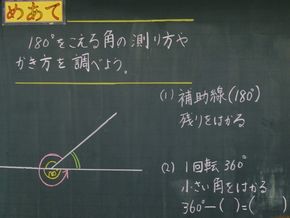 めあて
180°をこえる角の測り方や
かき方を調べよう。
(1) 補助線(180°)
残りをはかる
(2) 1回転360°
小さい角をはかる
360°-( )=( )